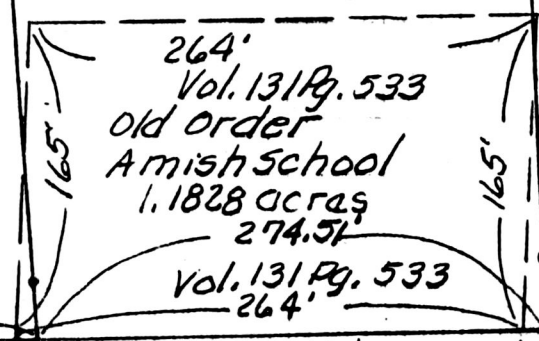 264'
Vol. 131 Pg. 533
Old Order
Amish School
1.1828 acres
165'
165'
274.51'
Vol. 131 Pg. 533
264'